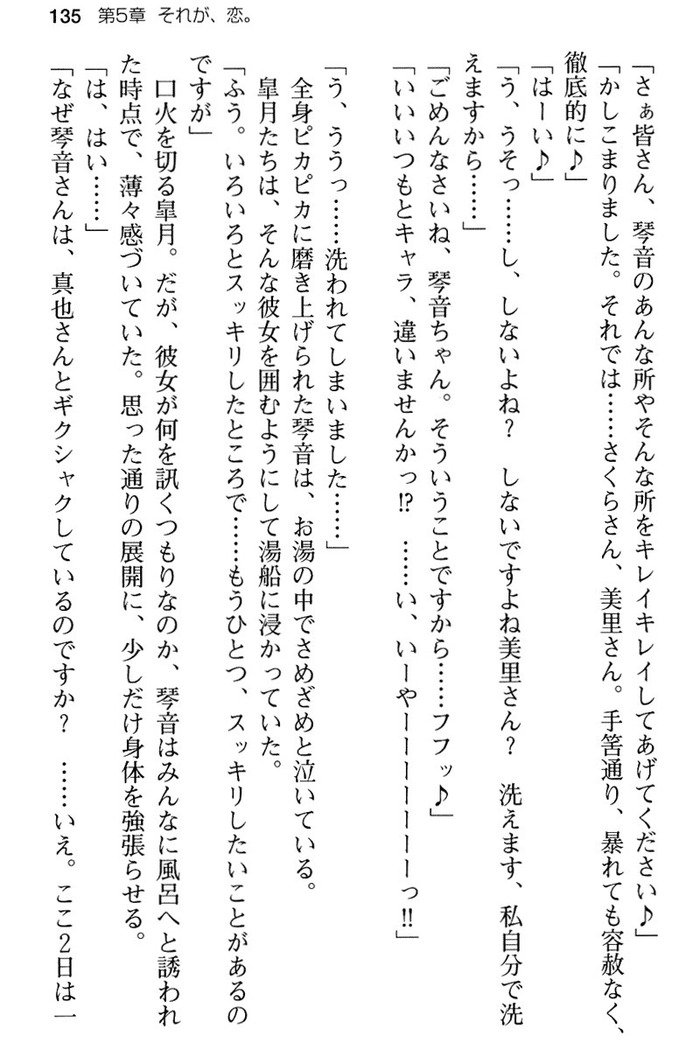 135 第5章 それが、恋。
「さぁ皆さん、琴音のあんな所やそんな所をキレイキレイしてあげてください♪」
「かしこまりました。それでは……さくらさん、美里さん。手筈通り、暴れても容赦なく、
徹底的に♪」
「はーい♪」
「う、うそっ……し、しないよね？　しないですよね美里さん？　洗えます、私自分で洗
えますから……」
「ごめんなさいね、琴音ちゃん。そういうことですから……フフッ♪」
「いいいつもとキャラ、違いませんかっ!?　……い、いーやーーーーーーーっ!!」
「う、ううっ……洗われてしまいました……」
全身ピカピカに磨き上げられた琴音は、お湯の中でさめざめと泣いている。
皐月たちは、そんな彼女を囲むようにして湯船に浸かっていた。
「ふう。いろいろとスッキリしたところで……もうひとつ、スッキリしたいことがあるの
ですが」
口火を切る皐月。だが、彼女が何を訊くつもりなのか、琴音はみんなに風呂へと誘われ
た時点で、薄々感づいていた。思った通りの展開に、少しだけ身体を強張らせる。
「は、はい……」
「なぜ琴音さんは、真也さんとギクシャクしているのですか？　……いえ。ここ2日は一